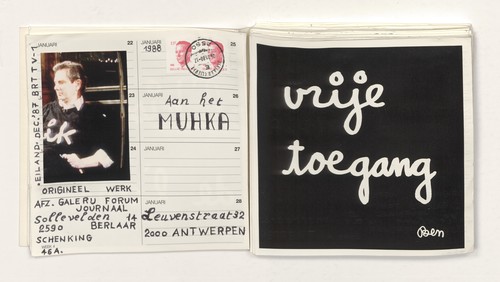 EILAND DEC. '87 BRT TV-1
JANUARI 22
23
ik
24
ORIGINEEL WERK
AFZ. GALERIJ FORUM
JOURNAAL
Sollevelden 14
2590 BERLAAR
SCHENKING
46A.
JANUARI 25
1988
JANUARI 26
Aan het
MUHKA
JANUARI 27
JANUARI 28
Leuvenstraat 32
2000 ANTWERPEN
vrije
toegang
Ben